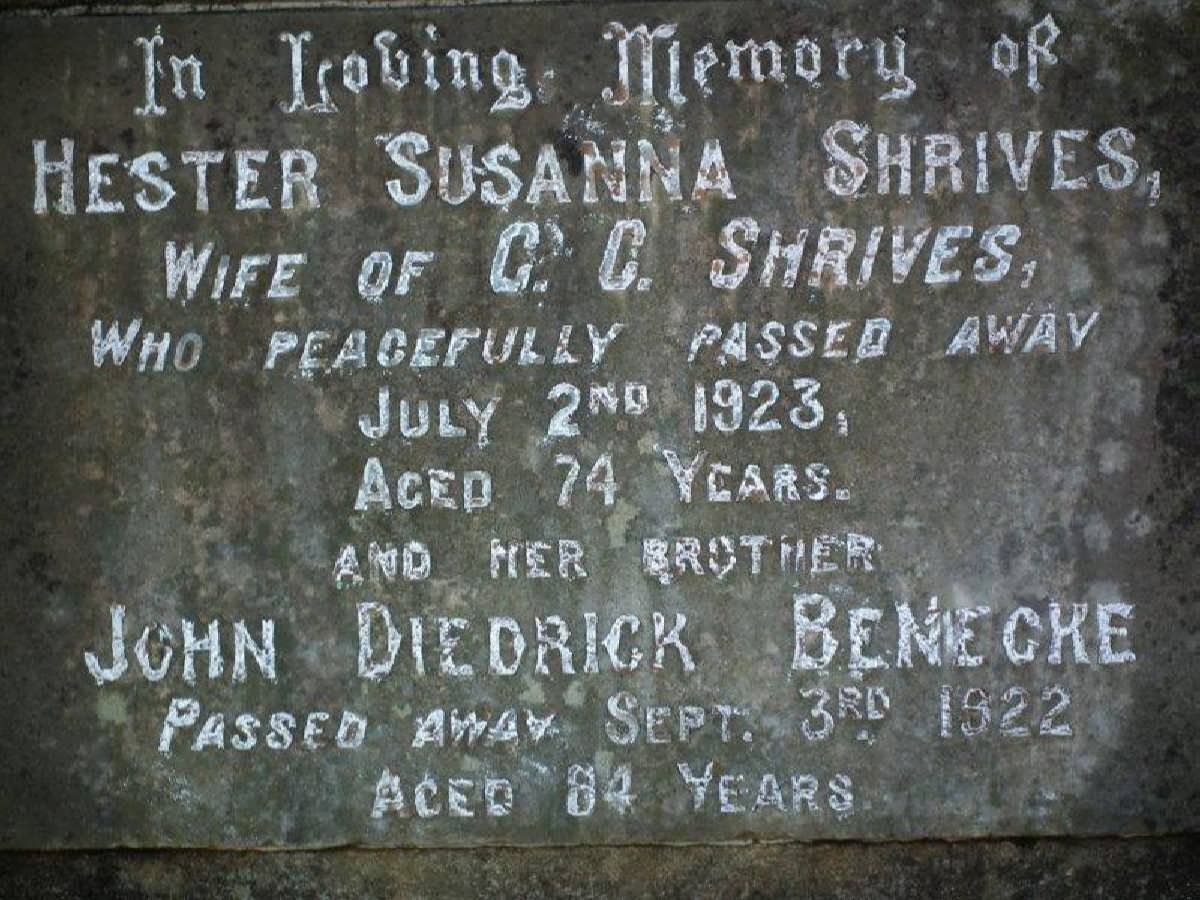 In Loving Memory of
HESTER SUSANNA SHRIVES,
WIFE OF C. C. SHRIVES,
WHO PEACEFULLY PASSED AWAY
JULY 2ND 1923,
AGED 74 YEARS.
AND HER BROTHER
JOHN DIEDRICK BENECKE
PASSED AWAY SEPT. 3RD 1922
AGED 84 YEARS